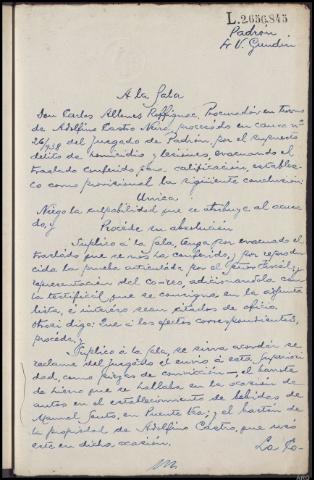 L.2.656.845
Padrón
A la Sala
Don Carlos Procurador en turno
de Adolfino Castro procesado en causa nº
26/938 del Juzgado de Padrón, por el supuesto
delito de homicidio y lesiones, evacuando el
traslado conferido, para calificación, estable-
co como provisional la siguiente conclusion:
Unica
Niego la culpabilidad que se atribuye al acusa-
do, y
Procede su absolucion
Suplico á la Sala, tenga por evacuado el
traslado que se nos ha conferido, y por reprodu-
cida la prueba articulada por el
representacion del co-reo, adicionandola con
la testifical que se consigna en la adjunta
lista, é intereso sean citados de oficio.
Otrosi digo: Que á los efectos correspondientes,
procede, y
Suplico á la Sala, se sirva acordar se
reclame del juzgado el envio á esta Superiori-
dad, como piezas de convicción, el
de hierro que se hallaba en la ocasion de
autos en el establecimiento de bebidas de
Manuel Santo, en Puente y el baston de
la propiedad de Adolfino Castro, que usó
este en dicha ocasion.
La Co-